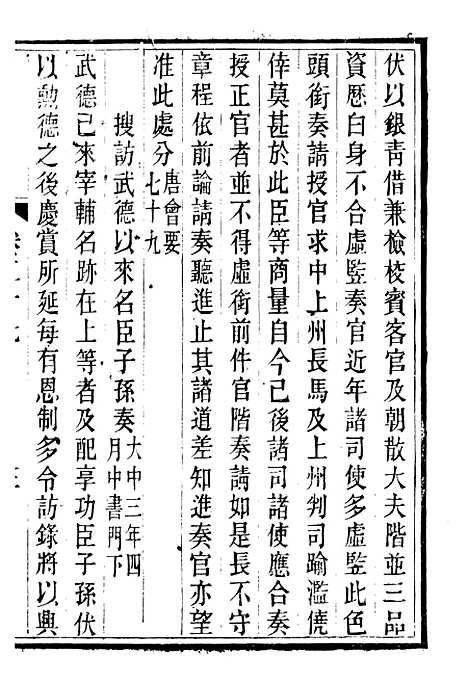 伏以銀青借兼檢校賓客官及朝散大夫階並三品
資歷白身不合虛監奏官近年諸司使多虛監此色
頭銜奏請授官求中上州長馬及上州判司踰濫僥
倖莫甚於此臣等商量自今已後諸司諸使應合奏
授正官者並不得虛銜前件官階奏請如是長不守
章程依前論請奏聽進止其諸道差知進奏官亦望
准此處分唐會要七十九
搜訪武德以來名臣子孫奏大中三年四月中書門下
武德已來宰輔名跡在上等者及配享功臣子孫伏
以勲德之後慶賞所延每有恩制多令訪錄將以興